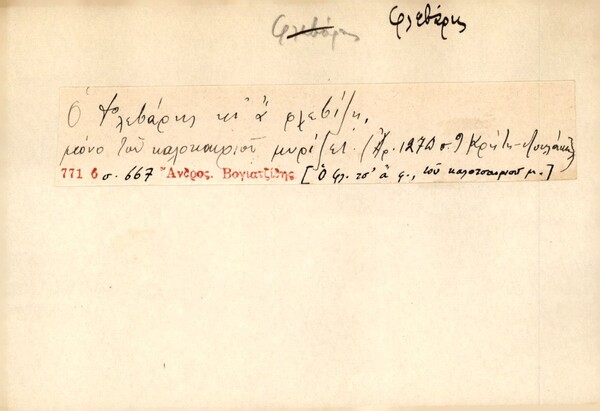 Φλεβάρης φλεβάρης
Ὁ Φλεβάρης κι' ἂ φλεβίζῃ,
μόνο τοῦ καλοκαιριοῦ μυρίζει. (Ἀρ. 1279 σ. 9 Κρήτη-
771 6 σ. 667 Ἄνδρος. Βογιατζίδης [Ὁ φλ. τσ' ἂ φ., τοῦ καλοτσαιριοῦ μ.]